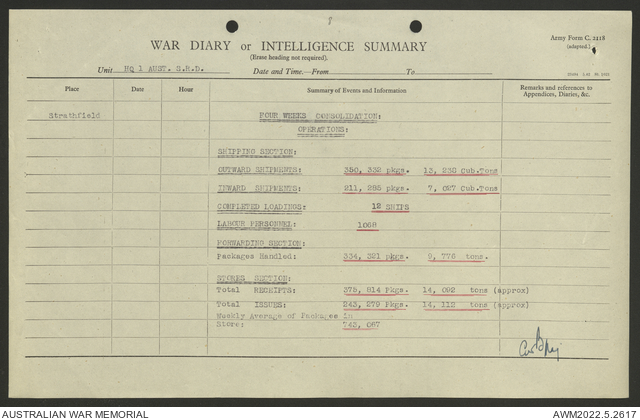 8
Army Form C. 2118
(adapted.)
WAR DIARY or INTELLIGENCE SUMMARY
(Erase heading not required).
Unit HQ 1 AUST. S.R.D. Date and Time.—From To
Place Date Hour Summary of Events and Information Remarks and references to
Appendices, Diaries, &c.
Strathfield FOUR WEEKS CONSOLIDATION:
OPERATIONS:
SHIPPING SECTION:
OUTWARD SHIPMENTS: 350, 332 pkgs. 13, 238 Cub.Tons
INWARD SHIPMENTS: 211, 285 pkgs. 7, 027 Cub.Tons
COMPLETED LOADINGS: 12 SHIPS
LABOUR PERSONNEL: 1068
FORWARDING SECTION:
Packages Handled: 334, 321 pkgs. 9, 776 tons.
STORES SECTION:
Total RECEIPTS: 375, 814 Pkgs. 14, 092 tons (approx)
Total ISSUES: 243, 279 Pkgs. 14, 112 tons (approx)
Weekly Average of Packages in
Store: 743, 067
AUSTRALIAN WAR MEMORIAL AWM2022.5.2617